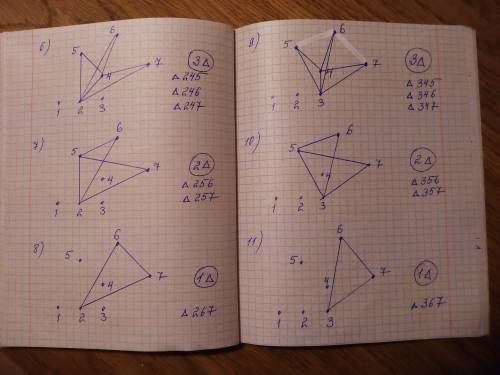 6)
6
5
7
4
1 2 3
3Δ
Δ 245
Δ 246
Δ 247
7)
6
5
7
4
1 2 3
2Δ
Δ 256
Δ 257
8)
6
5
7
4
1 2 3
1Δ
Δ 267
9)
6
5
7
4
1 2
3
3Δ
Δ 345
Δ 346
Δ 347
10)
6
5
7
4
1 2 3
2Δ
Δ 356
Δ 357
11)
6
5
7
4
1 2 3
1Δ
Δ 367